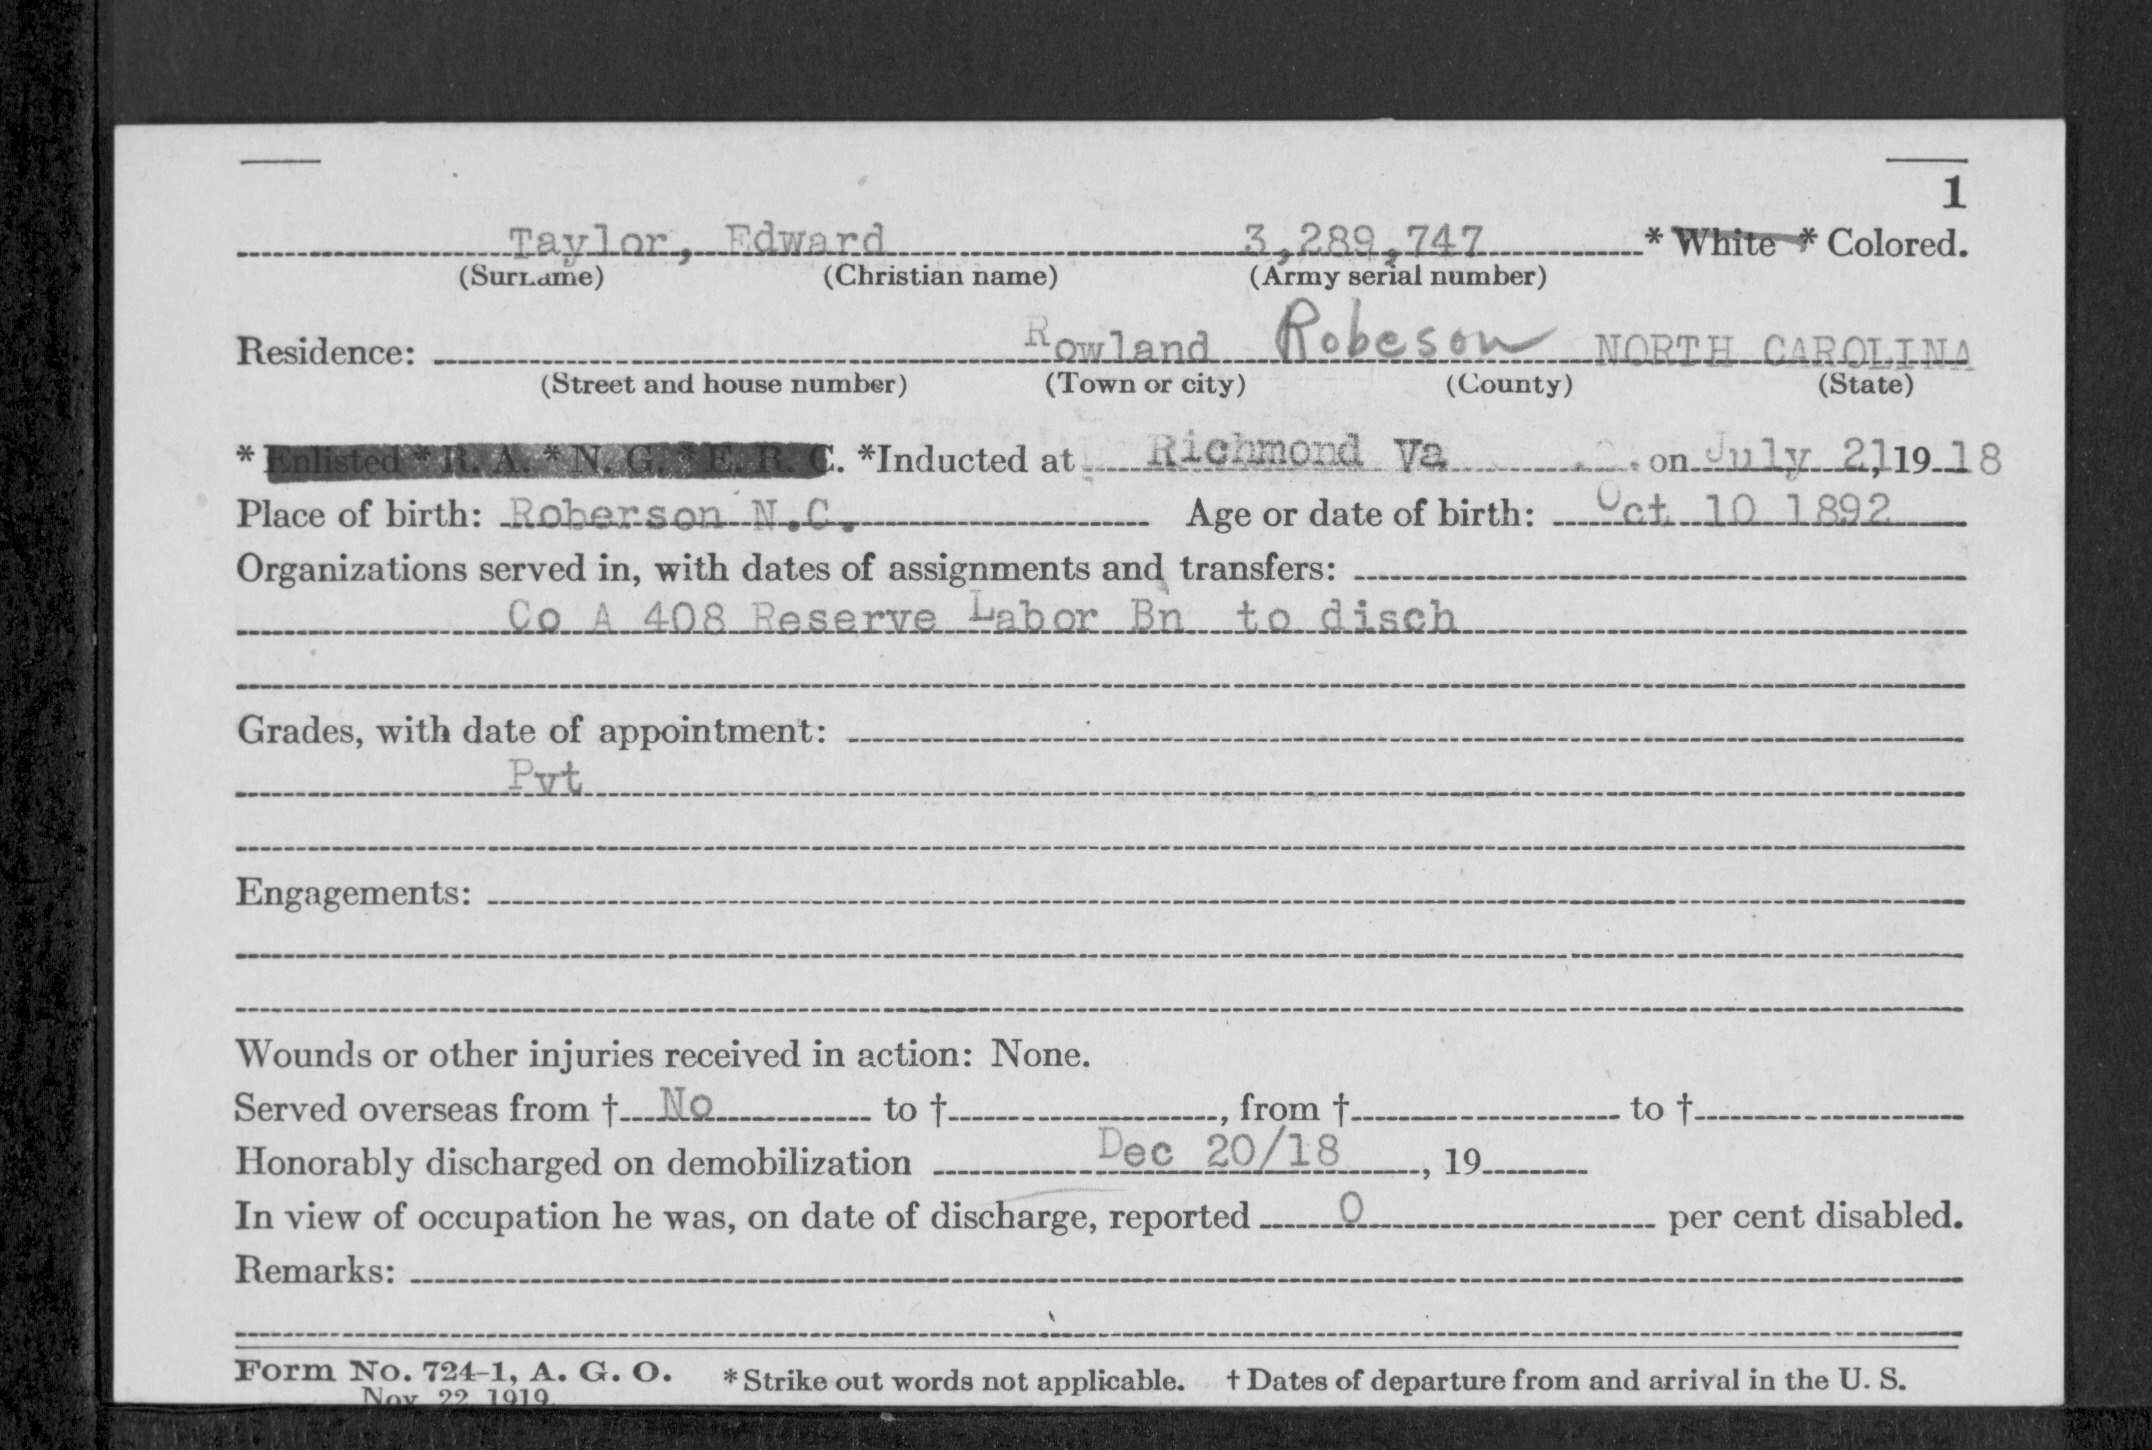 1
Taylor, Edward 3,289,747 * White * Colored.
(Surname) (Christian name) (Army serial number)
Residence: Rowland Robeson NORTH CAROLINA
(Street and house number) (Town or city) (County) (State)
* Enlisted * R. A. * N. G. * E. R. C. *Inducted at Richmond Va on July 21, 19 18
Place of birth: Roberson N.C. Age or date of birth: Oct 10 1892
Organizations served in, with dates of assignments and transfers:
Co A 408 Reserve Labor Bn to disch
Grades, with date of appointment:
Pvt
Engagements:
Wounds or other injuries received in action: None.
Served overseas from † No to †, from † to †
Honorably discharged on demobilization Dec 20/18, 19
In view of occupation he was, on date of discharge, reported 0 per cent disabled.
Remarks:
Form No. 724-1, A. G. O. * Strike out words not applicable. † Dates of departure from and arrival in the U. S.
Nov. 22, 1919.